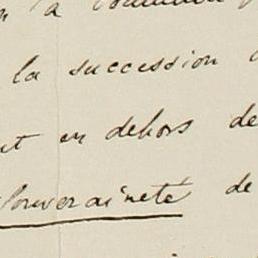 n à
la succession
t en dehors de
Souveraineté de